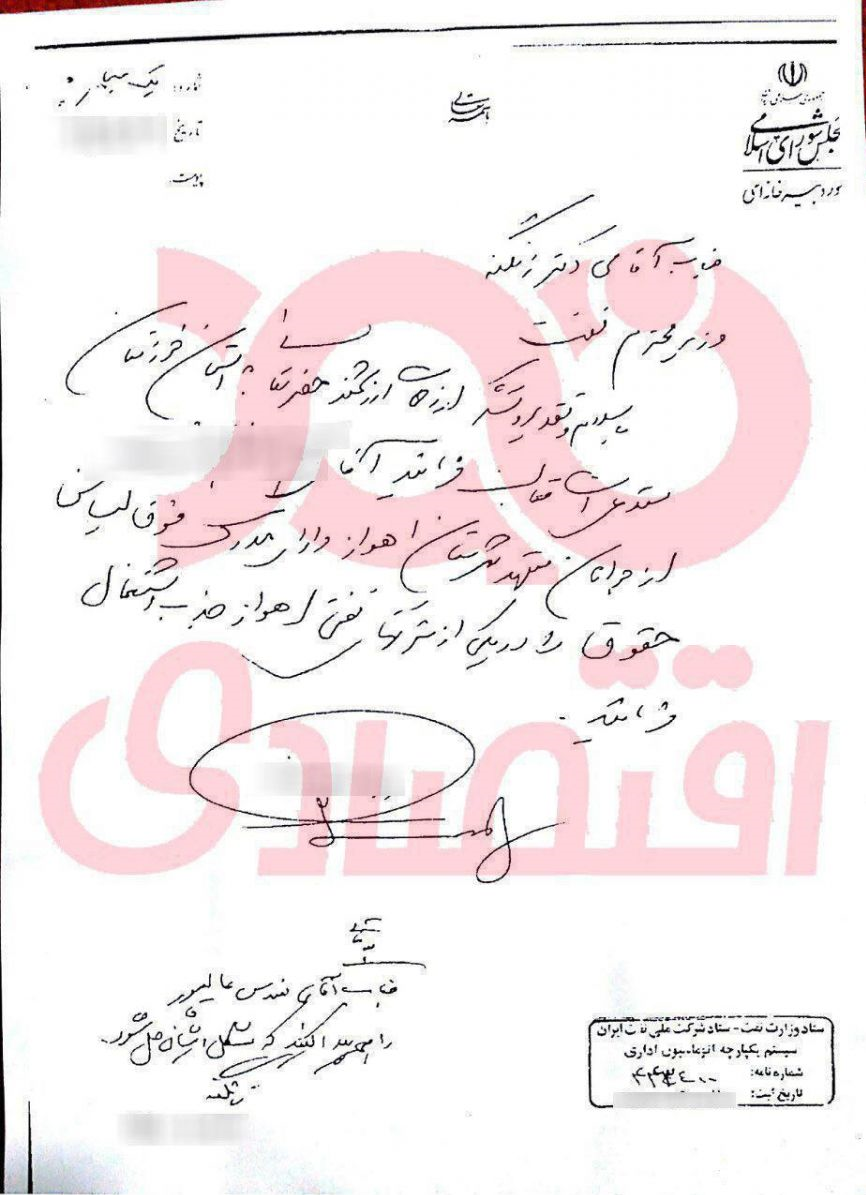 جمهوری اسلامی ایران
مجلس شورای اسلامی
باسمه تعالی
شماره:
تاریخ
پیوست
جناب آقای دکتر زنگنه
وزیر محترم نفت
سلام
باسلام و تقدیر و تشکر از زحمات ارزشمند حضرتعالی
مستدعی است فرمائید آقای
از جوانان متعهد شهرستان اهواز دارای مدرک فوق لیسانس
حقوق را در یکی از شرکتهای نفتی اهواز جذب و اشتغال
فرمائید.
نود اقتصادی
جناب آقای مهندس عالیپور
راهی پیدا کنید که مشکل ایشان حل شود.
زنگنه
ستاد وزارت نفت - ستاد شرکت ملی نفت ایران
سیستم یکپارچه اتوماسیون اداری
شماره نامه:
تاریخ ثبت: